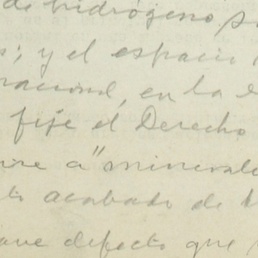 de hidrógeno
; y el espacio
nacional, en la
fije el Derecho
a "minerale
acabado de
ave defecto que